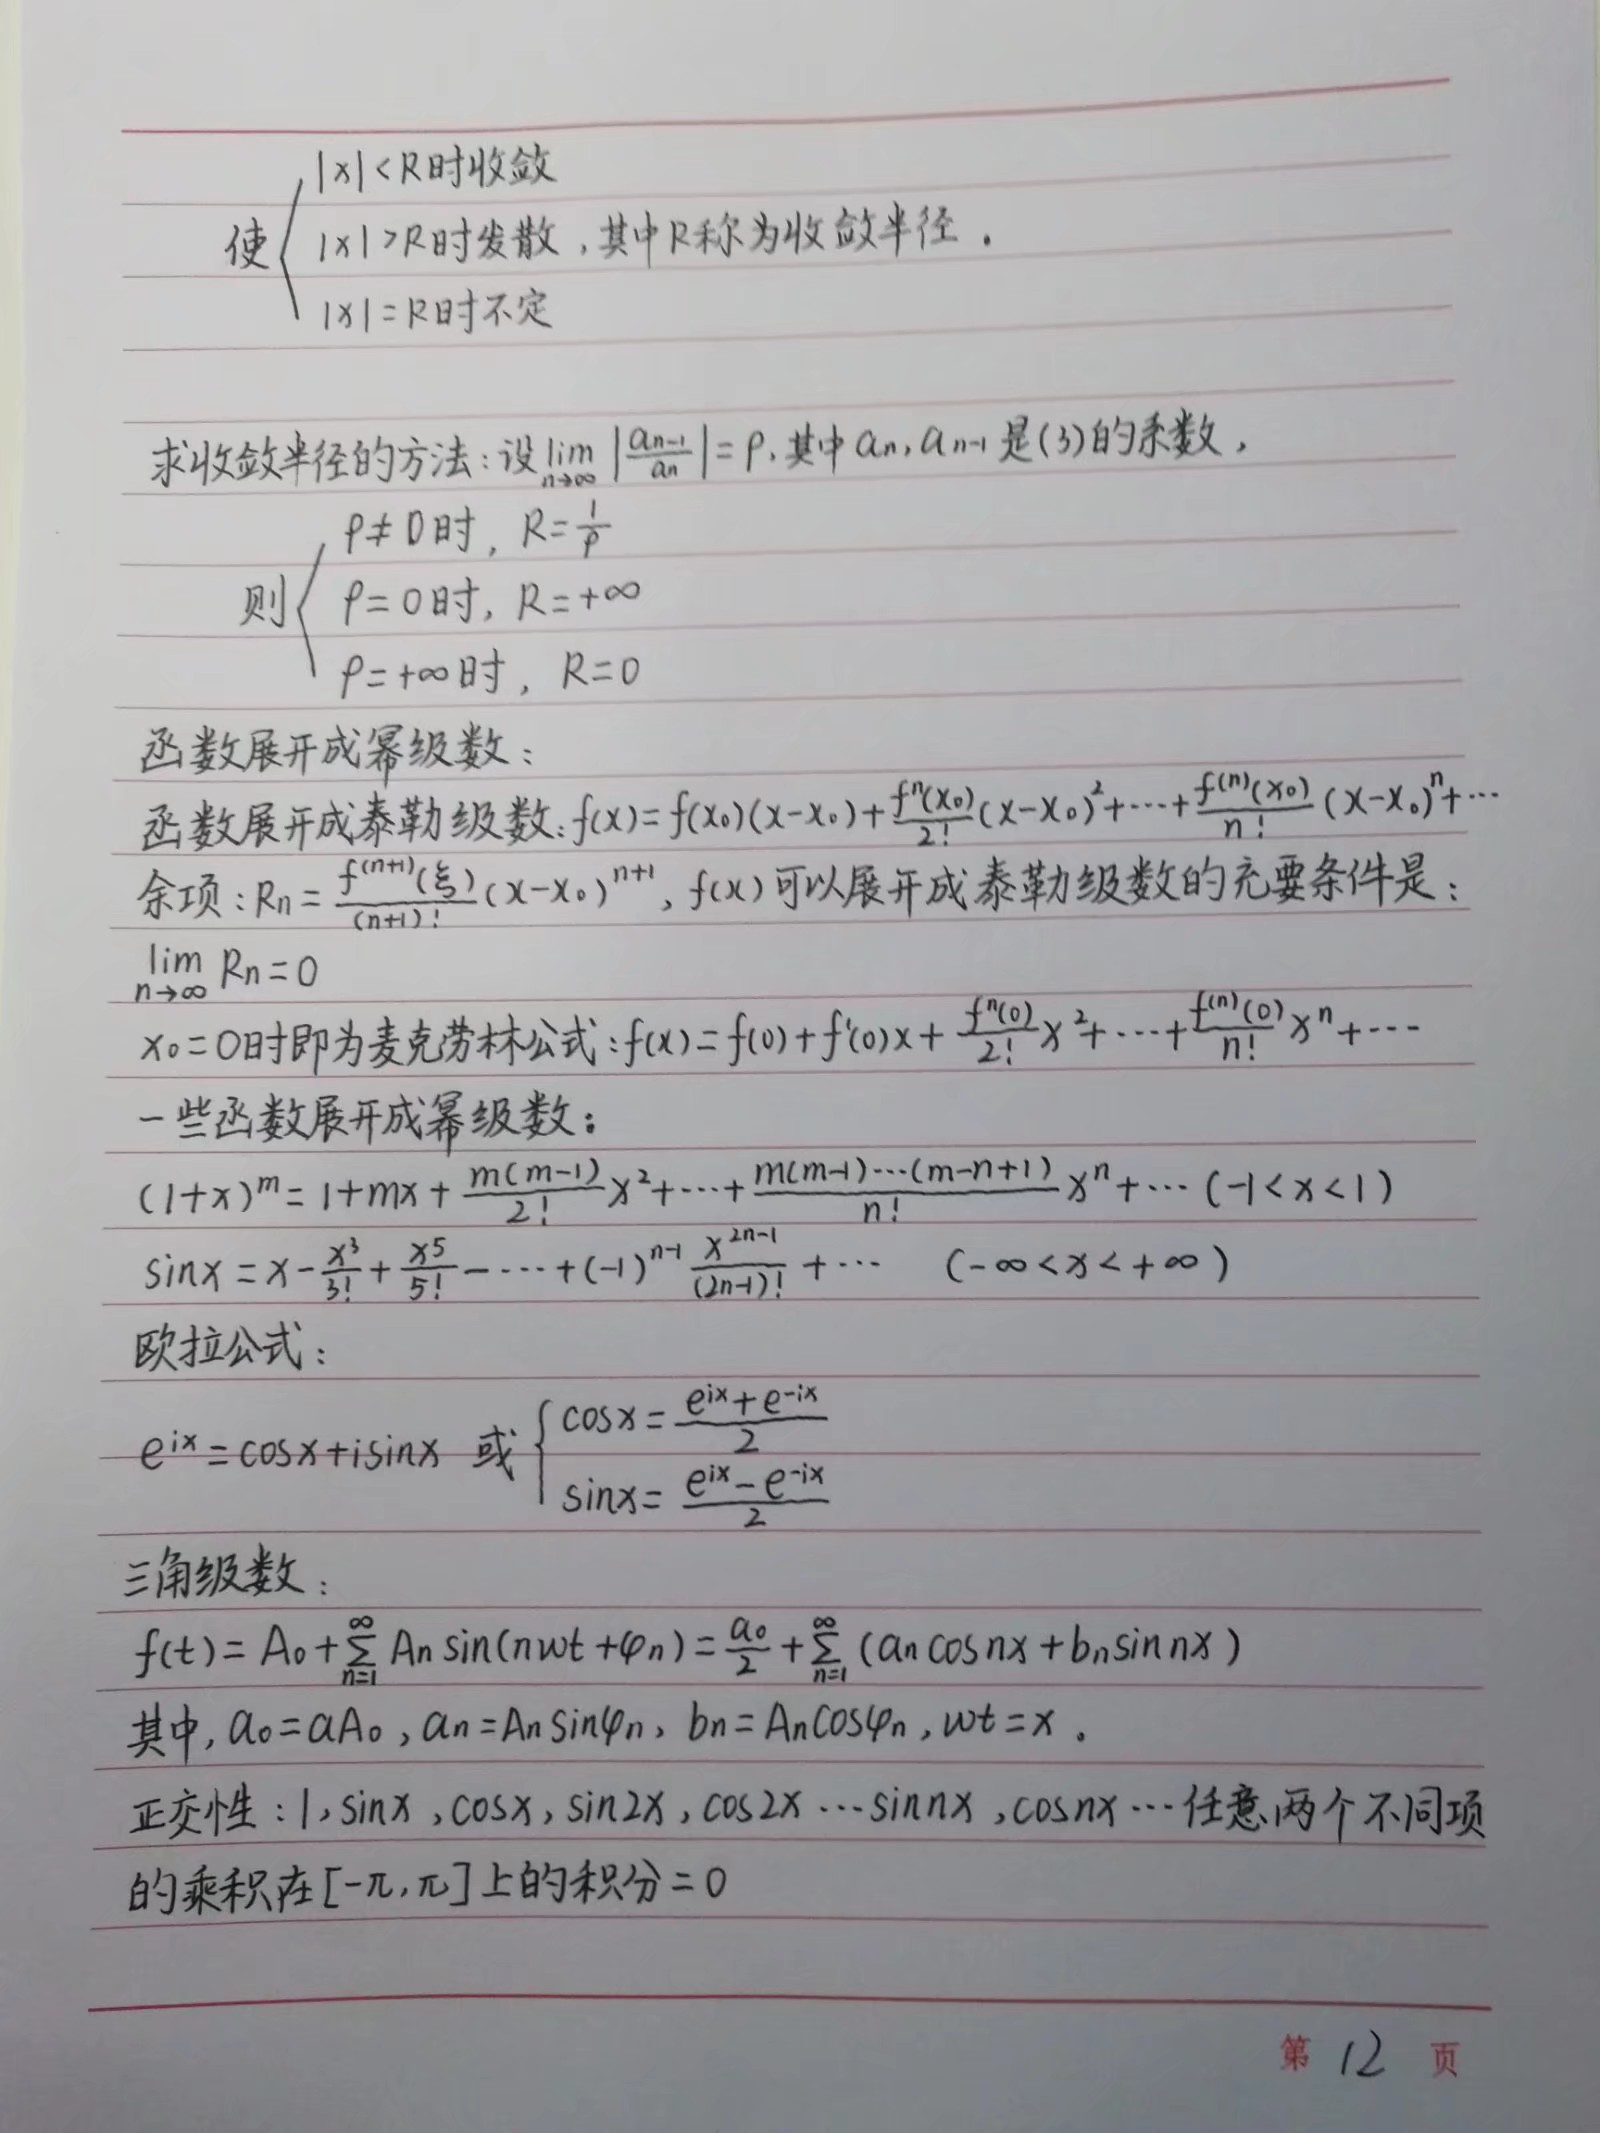 使{|x|<R时收敛
|x|>R时发散,其中R称为收敛半径.
|x|=R时不定
求收敛半径的方法:设lim_{n→∞}|a_{n-1}/a_n|=ρ,其中a_n,a_{n-1}是(3)的系数,
则{ρ≠0时,R=1/ρ
ρ=0时,R=+∞
ρ=+∞时,R=0
函数展开成幂级数:
函数展开成泰勒级数:f(x)=f(x₀)(x-x₀)+\frac{f^n(x₀)}{2!}(x-x₀)²+⋯+\frac{f^{(n)}(x₀)}{n!}(x-x₀)^n+⋯
余项:R_n=\frac{f^{(n+1)}(ξ)}{(n+1)!}(x-x₀)^{n+1},f(x)可以展开成泰勒级数的充要条件是:
lim_{n→∞}R_n=0
x₀=0时即为麦克劳林公式:f(x)=f(0)+f'(0)x+\frac{f^n(0)}{2!}x²+⋯+\frac{f^{(n)}(0)}{n!}x^n+⋯
一些函数展开成幂级数:
(1+x)^m=1+mx+\frac{m(m-1)}{2!}x²+⋯+\frac{m(m-1)⋯(m-n+1)}{n!}x^n+⋯(-1<x<1)
sinx=x-\frac{x³}{3!}+\frac{x⁵}{5!}-⋯+(-1)^{n-1}\frac{x^{2n-1}}{(2n-1)!}+⋯ (-∞<x<+∞)
欧拉公式:
e^{ix}=cosx+isinx 或{cosx=\frac{e^{ix}+e^{-ix}}{2}
sinx=\frac{e^{ix}-e^{-ix}}{2}
三角级数:
f(t)=A₀+∑_{n=1}^{∞}A_n sin(nwt+φ_n)=\frac{a₀}{2}+∑_{n=1}^{∞}(a_n cosnx+b_n sinnx)
其中,a₀=aA₀,a_n=A_n sinφ_n,b_n=A_n cosφ_n,wt=x。
正交性:1,sinx,cosx,sin2x,cos2x⋯sinnx,cosnx⋯任意两个不同项
的乘积在[-π,π]上的积分=0
第 12 页